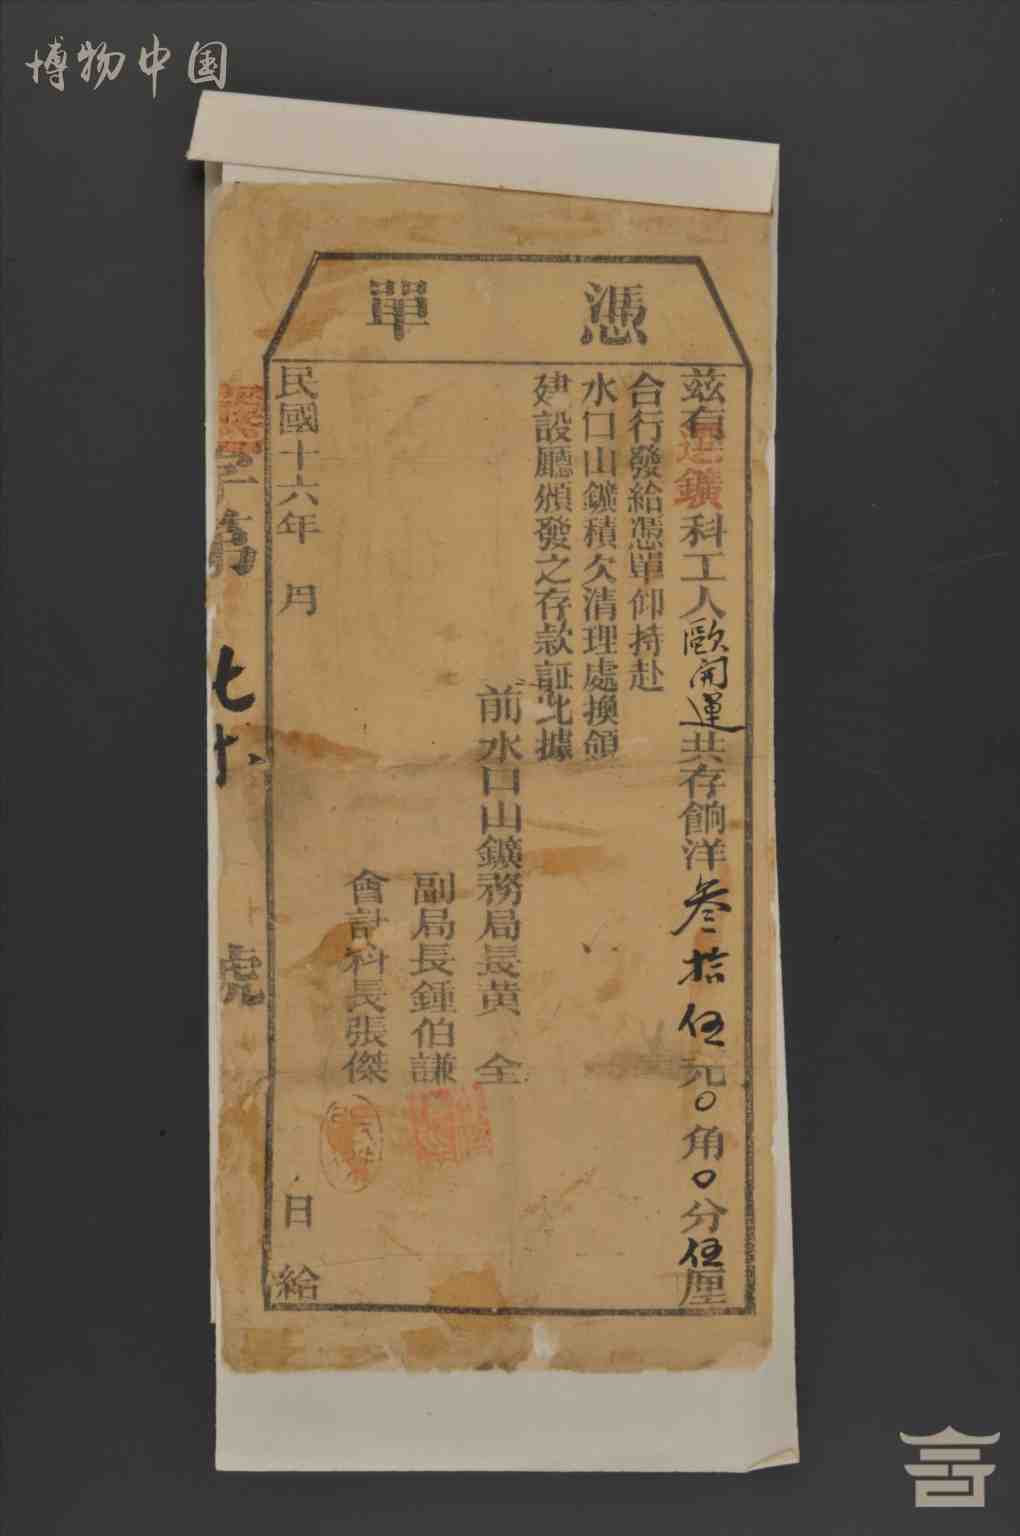 博物中国
憑單
茲有選鑛科工人歐開運共存餉洋叁拾伍元0角0分伍厘
合行發給憑單仰持赴
水口山鑛積欠清理處換領
建設廳頒發之存款証此據
前水口山鑛務局長黄全
副局長鍾伯謙
會計科長張傑
民國十六年 月 日給
字第 七十 號